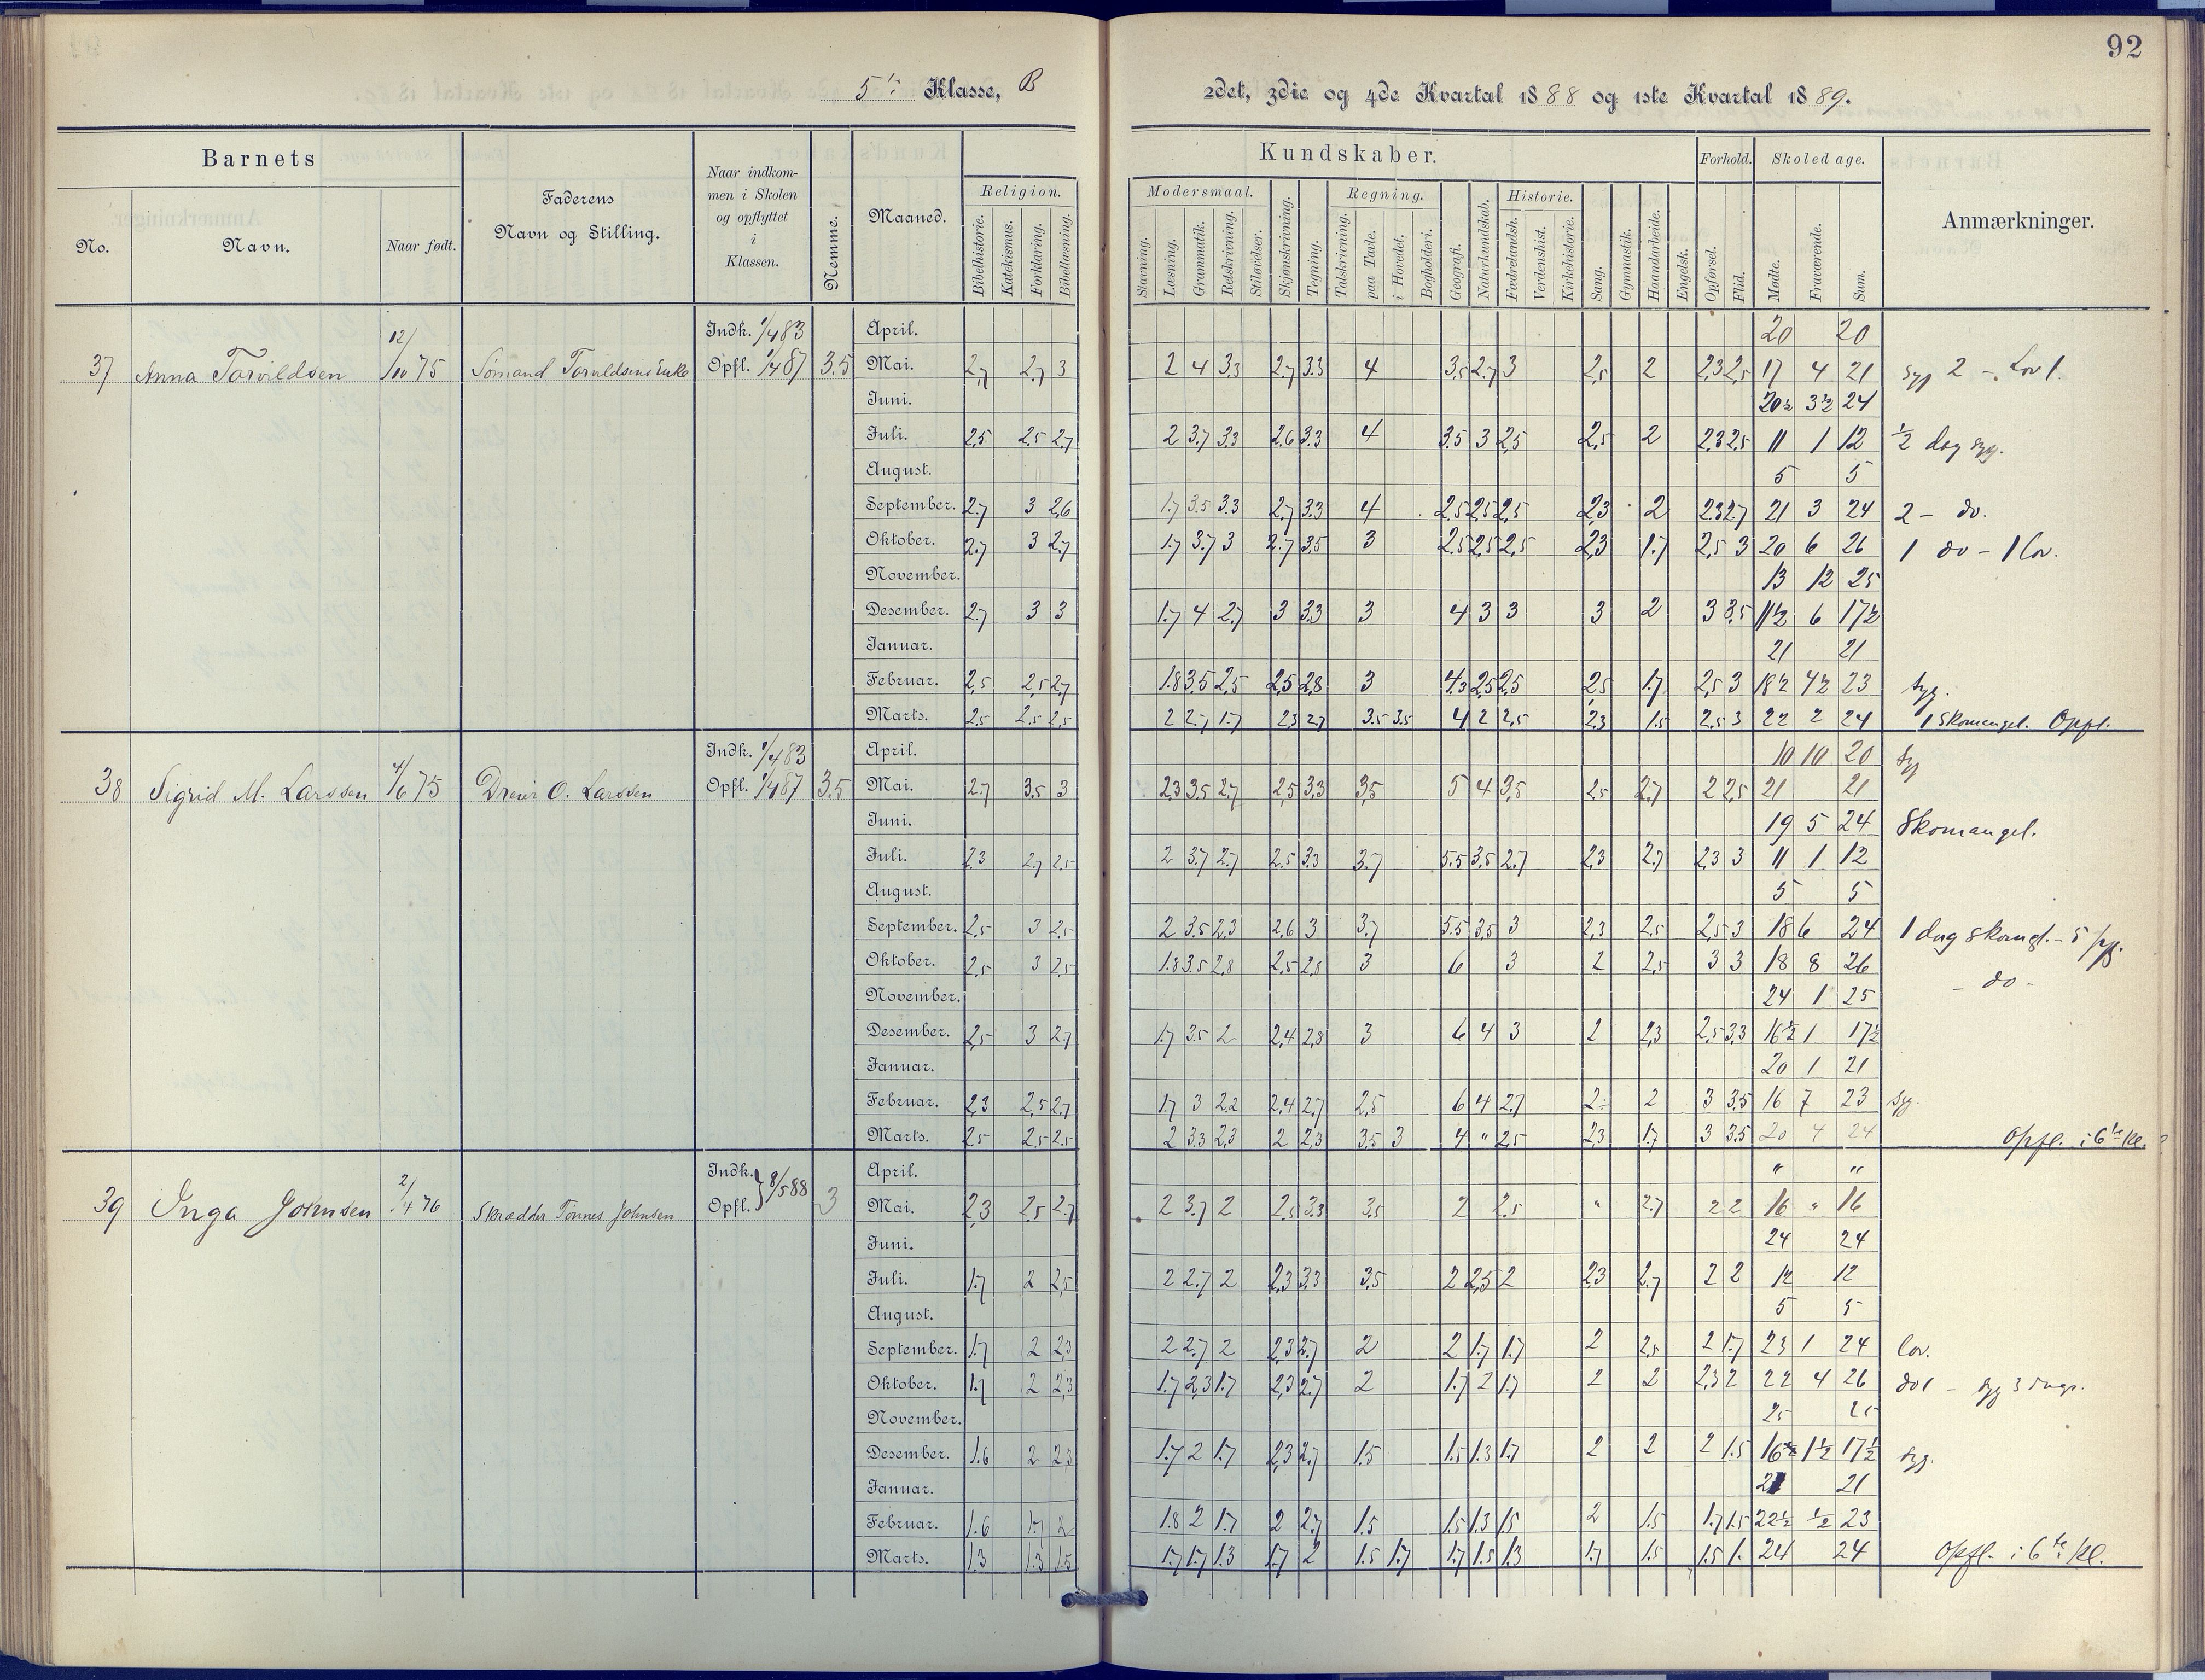 92
5te Klasse, B
2det, 3die og 4de Kvartal 1888 og 1ste Kvartal 1889.
Barnets
No.
Navn.
Naar født.
Faderens
Navn og Stilling.
Naar indkom-
men i Skolen
og opflyttet
i
Klassen.
Nemme.
Maaned.
Religion.
Bibelhistorie.
Katekismus.
Forklaring.
Bibellæsning.
Kundskaber.
Modersmaal.
Stavning.
Læsning.
Grammatik.
Retskrivning.
Stiløvelser.
Skjønskrivning.
Tegning.
Regning.
Talskrivning.
paa Tavle.
i Hovedet.
Bogholderi.
Geografi.
Naturkundskab.
Historie.
Fædrelandsh.
Verdenshist.
Kirkehistorie.
Sang.
Gymnastik.
Haandarbeide.
Engelsk.
Forhold.
Opførsel.
Flid.
Skoledage.
Mødte.
Fraværende.
Sum.
Anmærkninger.
37 Anna Torvildsen 12/10 75 Sømand Torvildsens Enke Indk. 1/4 83 Opfl. 1/4 87 3.5
April. 20 20
Mai. 2,7 2.7 3 2 4 3.3 2.7 3.3 4 3,5 2.7 3 2,5 2 2,3 2,5 17 4 21 syg 2 - Lov 1.
Juni. 20½ 3½ 24
Juli. 2,5 2,5 2,7 2 3.7 3.3 2.6 3.3 4 3.5 3 2,5 2,5 2 2.3 2.5 11 1 12 ½ dag syg.
August. 5 5
September. 2.7 3 2,6 1.7 3.5 3.3 2.7 3.3 4 2.5 2,5 2,5 2,3 2 2.3 2.7 21 3 24 2 - do.
Oktober. 2.7 3 2.7 1.7 3.7 3 2.7 3.5 3 2.5 2,5 2,5 2,3 1.7 2,5 3 20 6 26 1 do - 1 lov.
November. 13 12 25
Desember. 2.7 3 3 1.7 4 2.7 3 3.3 3 4 3 3 3 2 3 3,5 11½ 6 17½
Januar. 21 21
Februar. 2,5 2,5 2.7 1.8 3.5 2,5 2,5 2,8 3 4.3 2,5 2,5 2,5 1.7 2,5 3 18½ 4½ 23 syg.
Marts. 2,5 2.5 2,5 2 2.7 1.7 2,3 2.7 3.5 3.5 4 2 2,5 2,3 1.5 2.5 3 22 2 24 1 Skomangel. Opfl.
38 Sigrid M. Larssen 4/6 75 Dreier O. Larssen Indk. 1/4 83 Opfl. 1/4 87 3.5
April. 10 10 20 syg
Mai. 2.7 3.5 3 2,3 3.5 2.7 2,5 3.3 3,5 5 4 3,5 2,5 2,7 2 2,5 21 21
Juni. 19 5 24 Skomangel.
Juli. 2.3 2,7 2.5 2 3.7 2.7 2.5 3.3 3.7 5.5 3,5 2.7 2,3 2.7 2,3 3 11 1 12
August. 5 5
September. 2,5 3 2,5 2 3.5 2,3 2,6 3 3.7 5.5 3,5 3 2,3 2,5 2,5 3 18 6 24 1 dag skomgl. - 5 syg.
Oktober. 2,5 3 2,5 1.8 3.5 2,8 2,5 2,8 3 6 3 2 2,5 3 3 18 8 26 - do -
November. 24 1 25
Desember. 2,5 3 2.7 1.7 3.5 2 2,4 2,8 3 6 4 3 2 2,3 2,5 3,3 16½ 1 17½
Januar. 20 1 21
Februar. 2,3 2,5 2,7 1.7 3 2,2 2,4 2,7 2,5 6 4 2.7 2 2 3 3,5 16 7 23 syg.
Marts. 2.5 2,5 2.5 2 3.3 2,3 2 2,3 3.5 3 4 " 2,5 2,3 1.7 3 3.5 20 4 24 Opfl. i 6te Kl.
39 Inga Johnsen 2/4 76 Skrædder Tønnes Johnsen Indk. Opfl. } 8/5 88 3
April. " "
Mai. 2,3 2,5 2.7 2 3.7 2 2,5 3.3 3,5 2 2,5 " 2.7 2 2 16 " 16
Juni. 24 24
Juli. 1.7 2 2,5 2 2.7 2 2,3 3.3 3.5 2 2,5 2 2,3 2,7 2 2 12 12
August. 5 5
September. 1.7 2 2,3 2 2.7 2 2,3 2.7 2 2 1.7 1.7 2 2,5 2 1.7 23 1 24 lov.
Oktober. 1.7 2 2,3 1.7 2,3 1.7 2,3 2.7 2 1.7 2 1.7 2 2 2,3 2 22 4 26 do 1 - syg 3 dage.
November. 25 25
Desember. 1.6 2 2,3 1.7 2 1.7 2,3 2,7 1.5 1.5 1.3 1.7 2 2 2 1.5 16½ 1½ 17½ syg.
Januar. 21 21
Februar. 1.6 1.7 2 1.8 2 1.7 2 2.7 1.5 1.5 1.3 1.5 2 1.5 1.7 1.5 22½ ½ 23
Marts. 1.3 1.3 1.5 1.7 1.7 1.3 1.7 2 1.5 1.7 1.7 1.5 1.3 1.7 1.5 1.5 1. 24 24 Opfl. i 6te Kl.